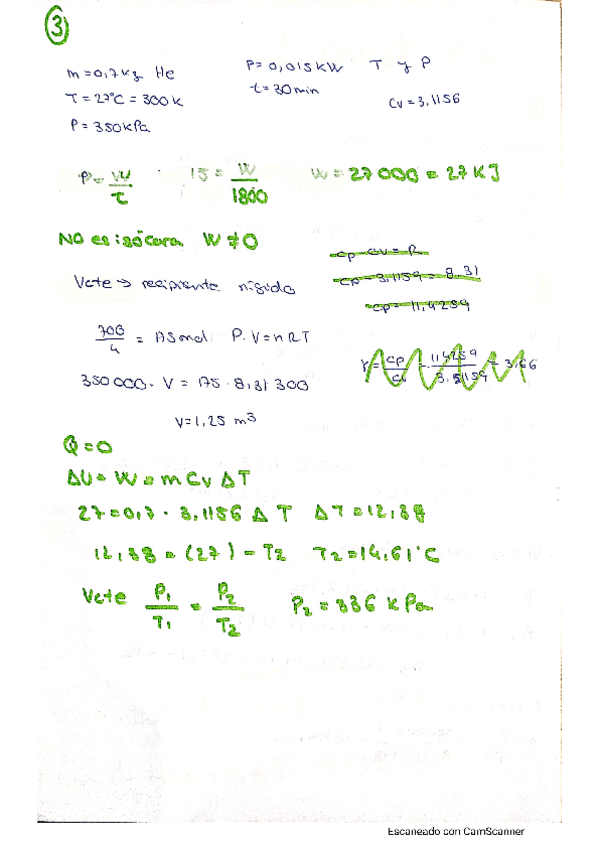 3
m=0,7kg He P=0,015kW T y P
T=27°C=300k t=30min Cv=3,1156
P=350kPa
P=W/t 15=W/1800 W=27000=27KJ
NO es isócora W≠0
cp-cv=R
Vcte → recipiente rígido
cp-3,1159=8.31
cp=11,4259
700/4 = 175mol P.V=nRT
γ=cp/cv 11,4259/3.1159 = 3,66
350000. V = 175.8,31 300
V=1,25 m3
Q=0
ΔU=W=mCvΔT
27=0,7.3,1156ΔT ΔT=12,38
12,38=(27)-T2 T2=14,61°C
Vcte P1/T1=P2/T2 P2=336kPa
Escaneado con CamScanner